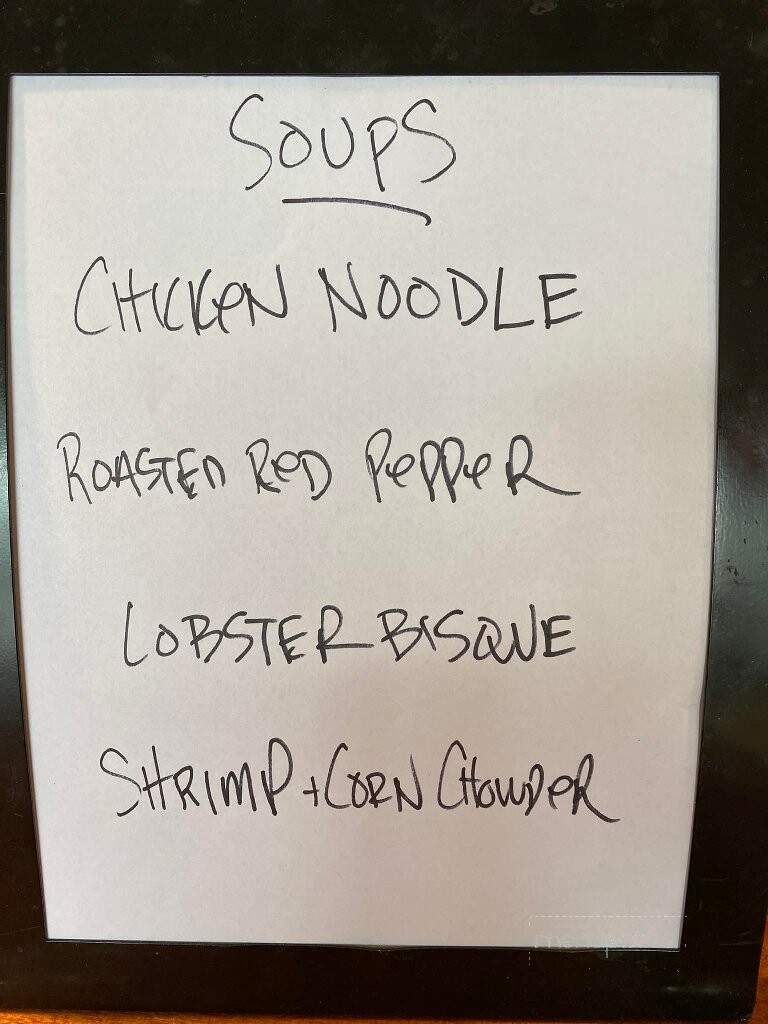 SOUPS
CHICKeN NOODLE
ROASTED ReD PePPeR
LOBSTER BISQUE
SHRIMP + CORN CHOWDeR